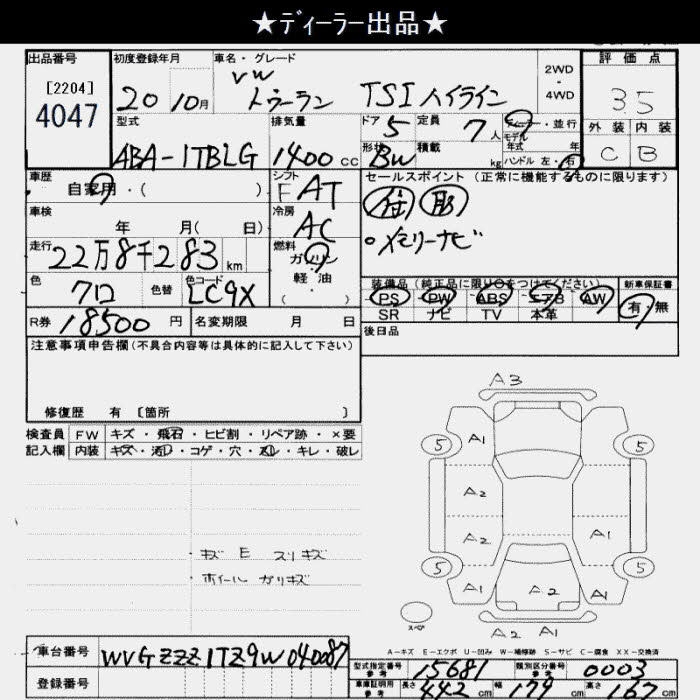 ★ディーラー出品★
出品番号 初度登録年月 車名・グレード 評価点
[2204] VW 2WD
4047 20 10月 トゥーラン TSIハイライン 4WD 35
型式 排気量 ドア 定員 ディーラー・並行 外装 内装
5 7人 モデル年式 年
ABA-1TBLG 1400cc 形状 BW 積載 kg ハンドル 左・右 C B
車歴 シフト セールスポイント(正常に機能するものに限ります)
自家用・( ) FAT
車検 冷房
年 月( 日) AC ・メモリーナビ
走行 燃料
22万8千283km ガソリン
色 色替 色コード 軽油 装備品(純正品に限り○をつけてください) 新車保証書
クロ LC9X (・) PS PW ABS エアB AW 有・無
R券 18500円 名変期限 月 日 SR ナビ TV 本革
注意事項申告欄(不具合内容等は具体的に記入して下さい) 後日品
修復歴 有 〔箇所 〕
検査員 FW キズ・飛石・ヒビ割・リペア跡・×要
記入欄 内装 キズ・汚レ・コゲ・穴・スレ・キレ・破レ
A3
5 A1 5
A2
A2 A1
5 A1 A2 A1 5
A2 A1
スペア
・キズ E スリキズ
・ホイール ガリキズ
A-キズ E-エクボ U-凹み W-補修跡 S-サビ C-腐食 XX-交換済
車台番号 WVGZZZ1TZ9W040087
登録番号
型式指定番号 参考 15681 類別区分番号 参考 0003
車庫証明用 参考 長さ 442cm 幅 179cm 高さ 167cm